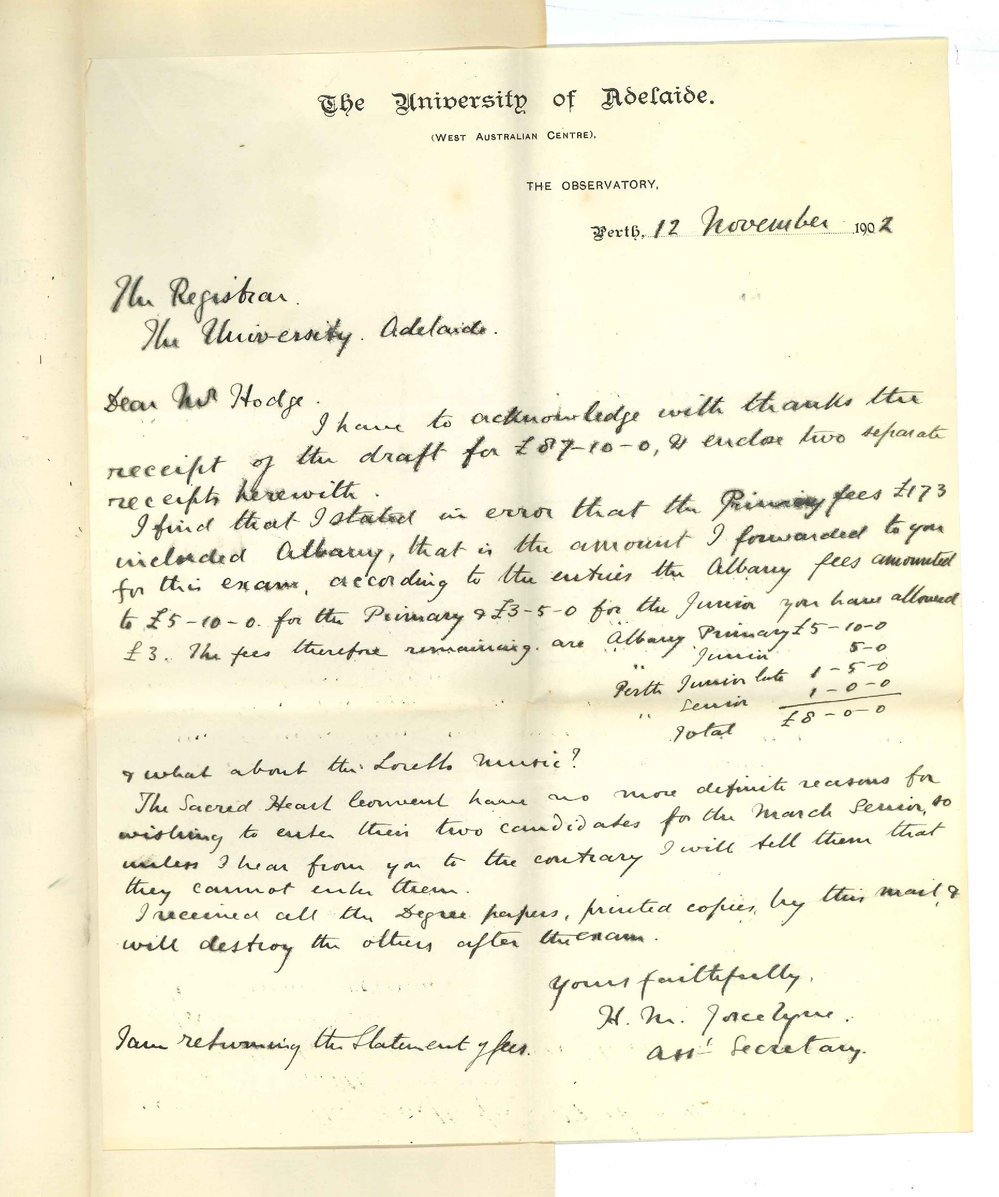 The University of Adelaide.
(WEST AUSTRALIAN CENTRE).
THE OBSERVATORY,
Perth, 12 November 1902
The Registrar.
The University. Adelaide.
Dear Mr Hodge.
I have to acknowledge with thanks the
receipt of the draft for £87-10-0, & enclose two separate
receipts herewith.
I find that I stated in error that the Primary fees £173
included Albany, that is the amount I forwarded to you
for this exam, according to the entries the Albany fees amounted
to £5-10-0. for the Primary & £3-5-0 for the Junior you have allowed
£3. The fees therefore remaining. are Albany Primary £5-10-0
" Junior 5-0
Perth Junior late 1-5-0
" Senior 1-0-0
Total £8-0-0
& what about the Loretto Music?
The Sacred Heart Convent have no more definite reasons for
wishing to enter their two candidates for the March Senior, so
unless I hear from you to the contrary I will tell them that
they cannot enter them.
I received all the Degree papers, printed copies, by this mail, &
will destroy the others after the exam.
Yours faithfully,
H. M. Jocelyne.
Asst Secretary.
I am returning the Statement of fees.